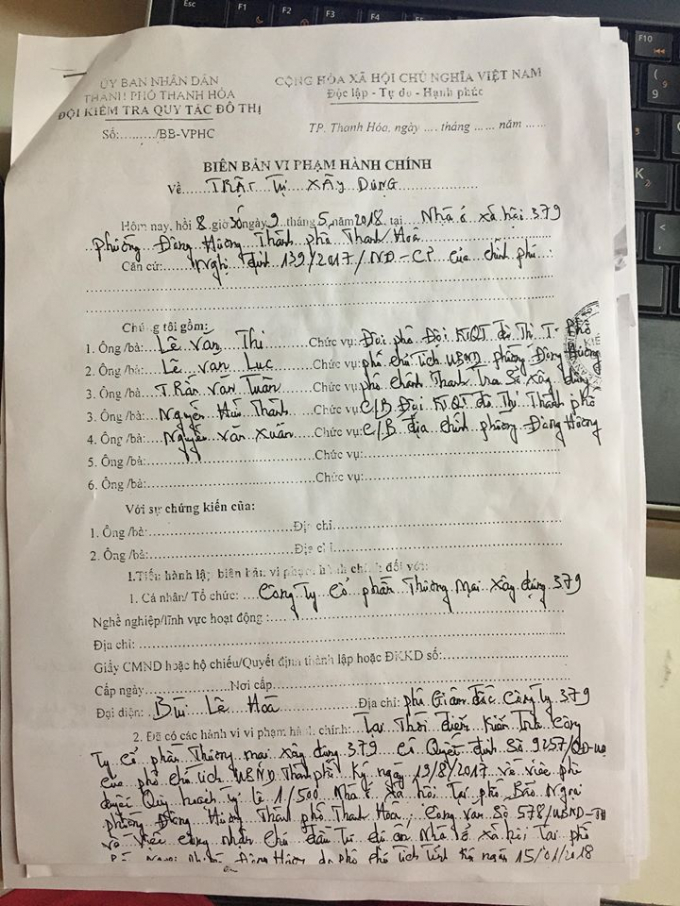 ỦY BAN NHÂN DÂN
THÀNH PHỐ THANH HÓA
ĐỘI KIỂM TRA QUY TẮC ĐÔ THỊ
Số:........./BB-VPHC
CỘNG HÒA XÃ HỘI CHỦ NGHĨA VIỆT NAM
Độc lập - Tự do - Hạnh phúc
TP. Thanh Hóa, ngày .... tháng ...... năm ......
BIÊN BẢN VI PHẠM HÀNH CHÍNH
Về Trật Tự xây dựng
Hôm nay, hồi 8 giờ 30 ngày 9 tháng 5 năm 2018 tại Nhà ở xã hội 379
phường Đông Hương Thành phố Thanh Hoá
Căn cứ: Nghị định 139/2017/NĐ-CP của chính phủ
Chúng tôi gồm:
1. Ông /bà: Lê Văn Thi Chức vụ: Đội phó Đội KTQT đô Thị T. Phố
2. Ông /bà: Lê Văn Lực Chức vụ: phó chủ tịch UBND phường Đông Hương
3. Ông /bà: Trần Văn Tuân Chức vụ: phó chánh Thanh Tra Sở xây dựng
3. Ông /bà: Nguyễn Hữu Thành Chức vụ: C/B Đội KTQT đô Thị Thành phố
4. Ông /bà: Nguyễn Văn Xuân Chức vụ: C/B địa chính phường Đông Hương
5. Ông /bà: Chức vụ:
6. Ông /bà: Chức vụ:
Với sự chứng kiến của:
1. Ông /bà: Địa chỉ
2. Ông /bà: Địa chỉ
I.Tiến hành lập biên bản vi phạm hành chính đối với:
1. Cá nhân/ Tổ chức: Công Ty Cổ phần Thương mại xây dựng 379
Nghề nghiệp/lĩnh vực hoạt động :
Địa chỉ:
Giấy CMND hoặc hộ chiếu/Quyết định thành lập hoặc ĐKKD số:
Cấp ngày Nơi cấp
Đại diện: Bùi Lê Hoà Địa chỉ: phó Giám đốc Công Ty 379
2. Đã có các hành vi vi phạm hành chính: Tại Thời điểm kiểm tra Công
Ty Cổ phần Thương mại xây dựng 379 có Quyết định Số 9257/QĐ-UB
của phó chủ tịch UBND Thành phố ký ngày 19/8/2017 về việc phê
duyệt Quy hoạch tỷ lệ 1/500 Nhà ở xã hội Tại phố Bào Ngoại
phường Đông Hương Thành phố Thanh Hóa, Công văn Số 578/UBND-TH
về việc công nhận chủ đầu tư dự án Nhà ở xã hội Tại phố
Đông Hương do phó chủ tịch Tỉnh ký ngày 15/01/2018